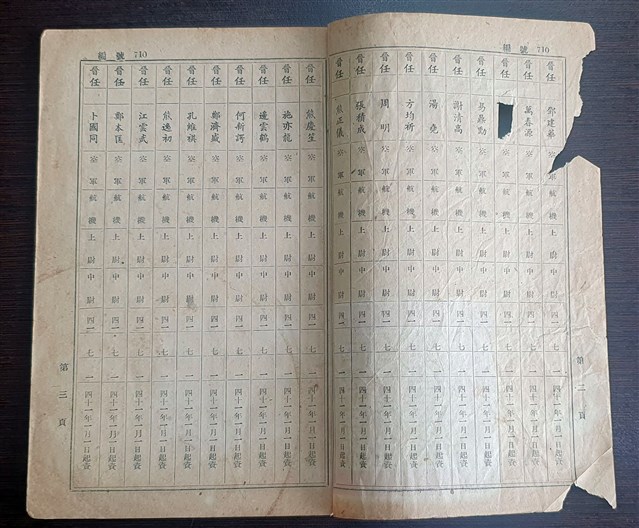 編號 710
晉任 鄧建華 機 上尉 中尉 四一 七 一 四十一年一月一日起資
晉任 萬春源 空軍航機 上尉 中尉 四一 七 一 四十一年一月一日起資
晉任 空軍航機 上尉 中尉 四一 七 一 四十一年一月一日起資
晉任 易嘉勳 空軍航機 上尉 中尉 四一 七 一 四十一年一月一日起資
晉任 謝清高 空軍航機 上尉 中尉 四一 七 一 四十一年一月一日起資
晉任 湯堯 空軍航機 上尉 中尉 四一 七 一 四十一年一月一日起資
晉任 方均祈 空軍航機 上尉 中尉 四一 七 一 四十一年一月一日起資
晉任 周明 空軍航機 上尉 中尉 四一 七 一 四十一年一月一日起資
晉任 張精成 空軍航機 上尉 中尉 四一 七 一 四十一年一月一日起資
晉任 熊正儀 空軍航機 上尉 中尉 四一 七 一 四十一年一月一日起資
第二頁
編號 710
晉任 熊慶笙 空軍航機 上尉 中尉 四一 七 一 四十一年一月一日起資
晉任 施亦龍 空軍航機 上尉 中尉 四一 七 一 四十一年一月一日起資
晉任 邊雲鶴 空軍航機 上尉 中尉 四一 七 一 四十一年一月一日起資
晉任 何新諤 空軍航機 上尉 中尉 四一 七 一 四十一年一月一日起資
晉任 鄭濟威 空軍航機 上尉 中尉 四一 七 一 四十一年一月一日起資
晉任 孔維祺 空軍航機 上尉 中尉 四一 七 一 四十一年一月一日起資
晉任 熊逸初 空軍航機 上尉 中尉 四一 七 一 四十一年一月一日起資
晉任 江雲武 空軍航機 上尉 中尉 四一 七 一 四十一年一月一日起資
晉任 鄭本匡 空軍航機 上尉 中尉 四一 七 一 四十一年一月一日起資
晉任 卜國同 空軍航機 上尉 中尉 四一 七 一 四十一年一月一日起資
第三頁